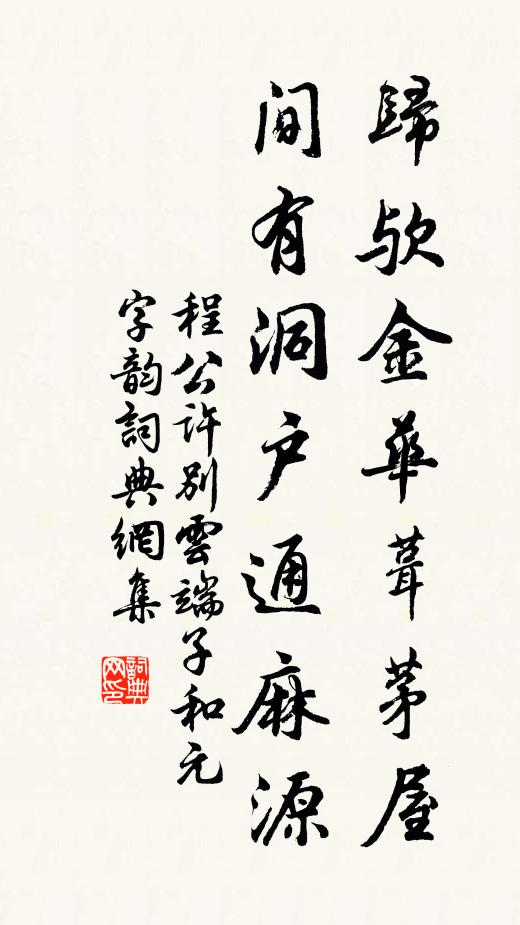 歸歟金華葺茅屋
間有洞户通麻源
程公許别雲端子和元
字韵詞典網集
詞典网印